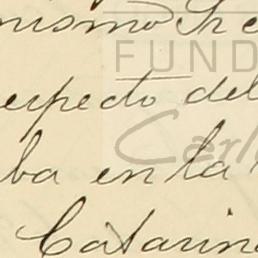 nismo Sr
FUND
especto del
ba en la
Catarin